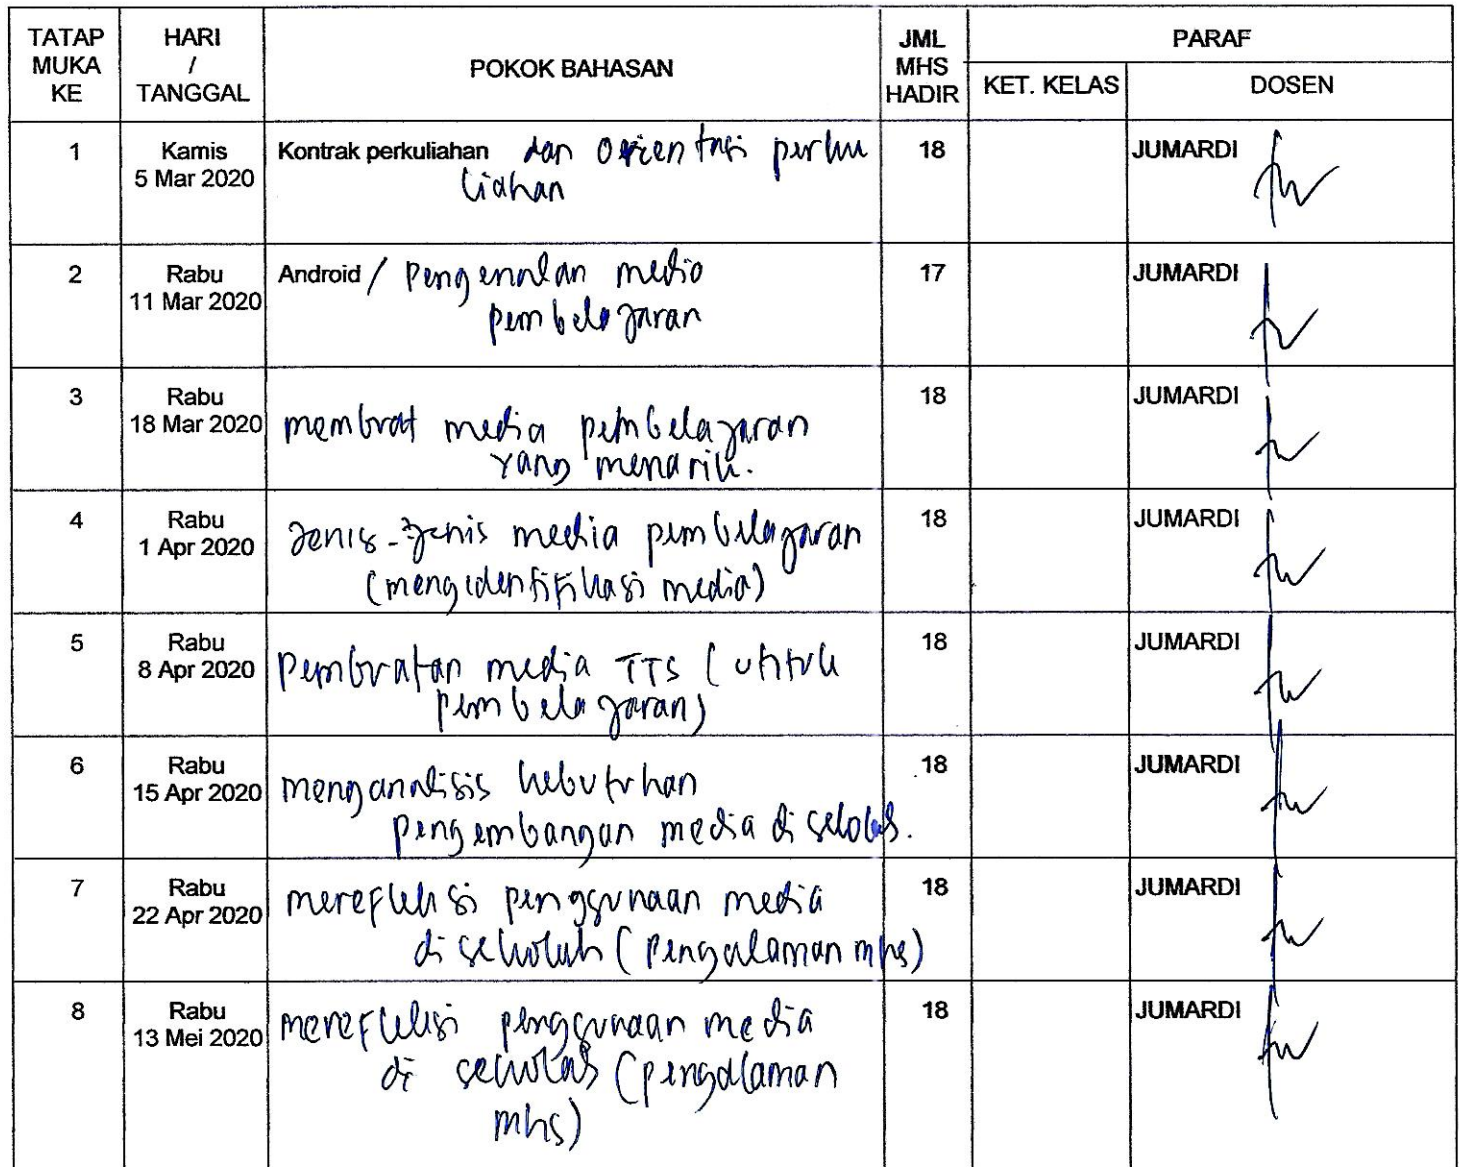 TATAP MUKA KE
HARI / TANGGAL
POKOK BAHASAN
JML MHS HADIR
PARAF
KET. KELAS
DOSEN
1
Kamis
5 Mar 2020
Kontrak perkuliahan dan orientasi perku
liahan
18
JUMARDI
2
Rabu
11 Mar 2020
Android / Pengenalan media
pembelajaran
17
JUMARDI
3
Rabu
18 Mar 2020
membuat media pembelajaran
yang menarik.
18
JUMARDI
4
Rabu
1 Apr 2020
Jenis-Jenis media pembelajaran
(mengidentifikasi media)
18
JUMARDI
5
Rabu
8 Apr 2020
Pembuatan media TTS (untuk
pembelajaran)
18
JUMARDI
6
Rabu
15 Apr 2020
menganalisis kebutuhan
pengembangan media di sekolah.
18
JUMARDI
7
Rabu
22 Apr 2020
merefleksi penggunaan media
di sekolah (pengalaman mhs)
18
JUMARDI
8
Rabu
13 Mei 2020
merefleksi penggunaan media
di sekolah (pengalaman
mhs)
18
JUMARDI